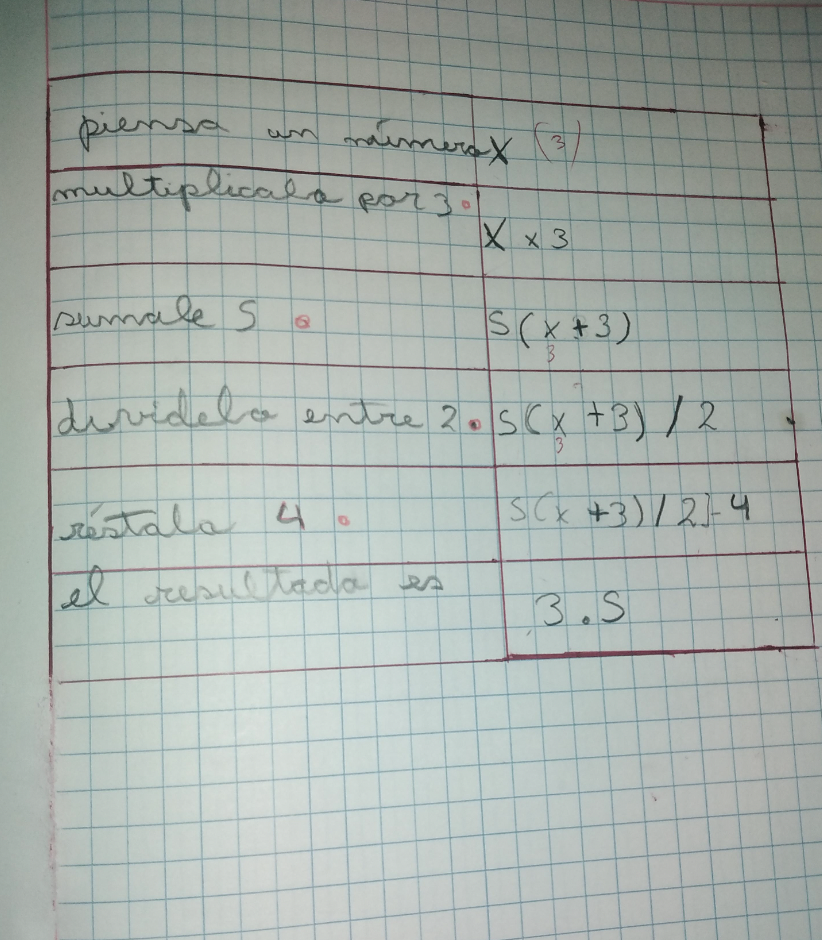 piensa un número X (3)
multiplicalo por 3.
X x 3
sumale 5.
5(x+3)
3
dividelo entre 2.
5(x+3)/2
3
réstalo 4.
5(x+3)/2]-4
el resultado es
3.5